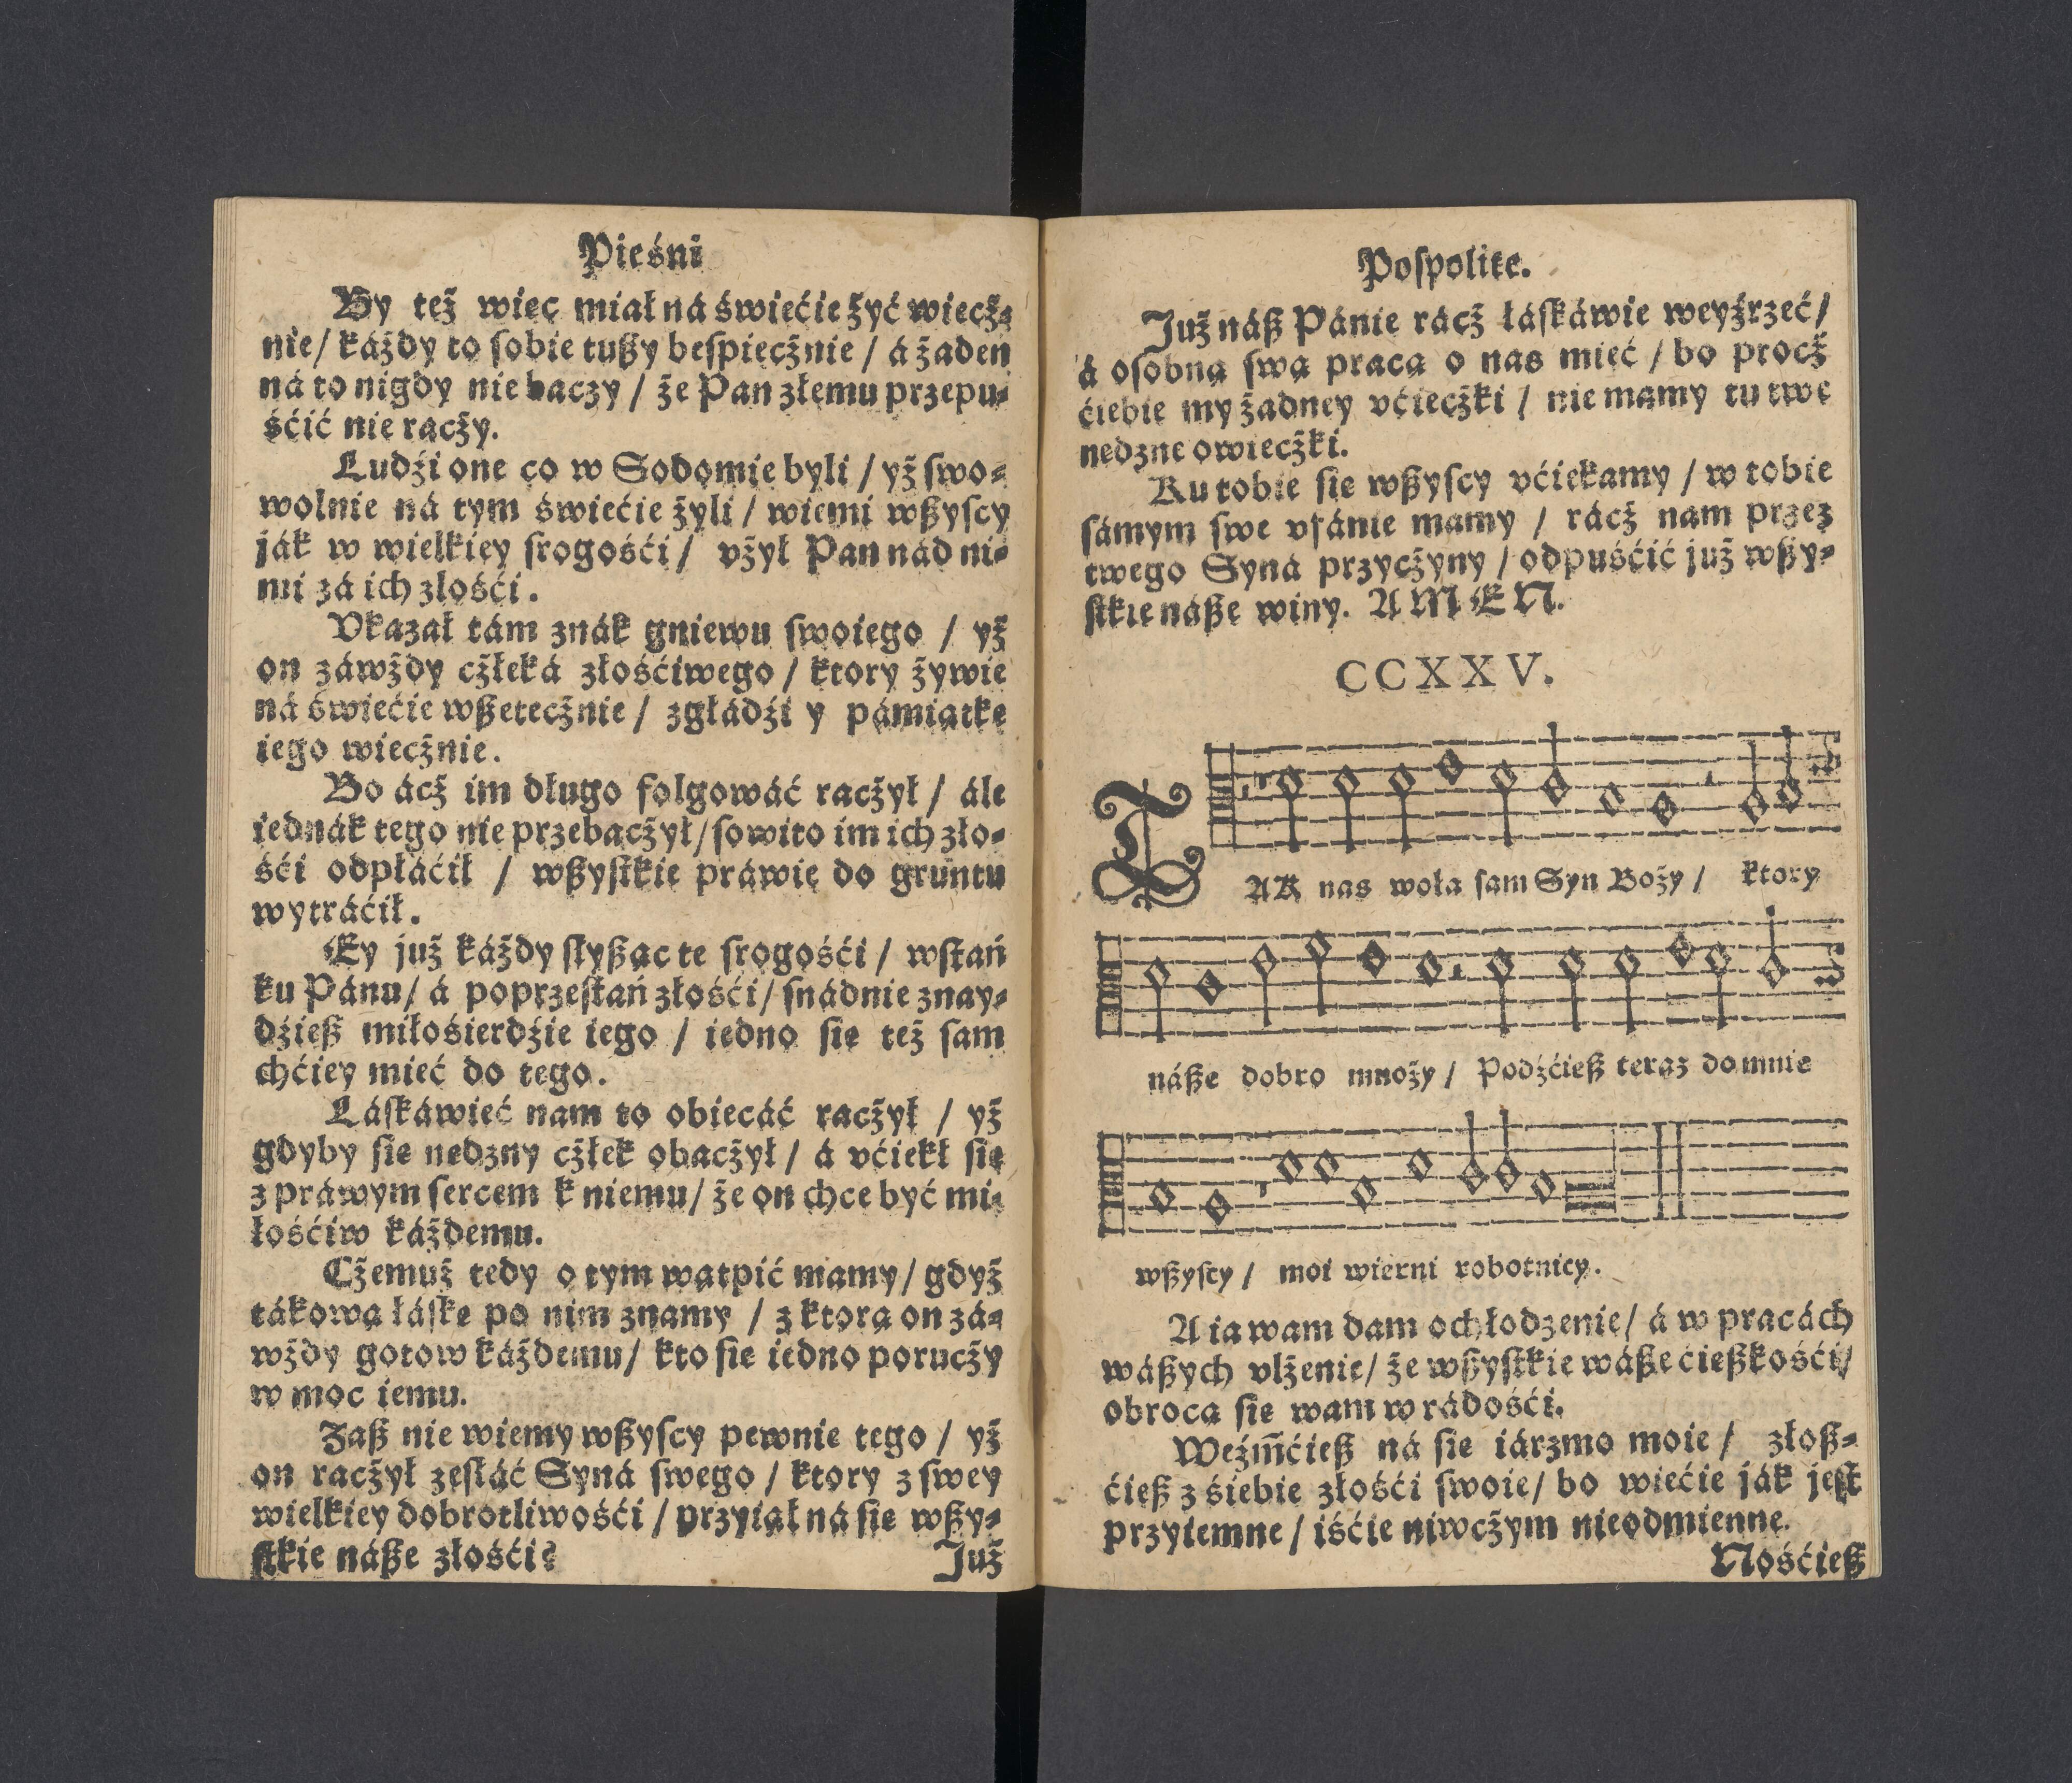 Pieśni
By też wiec miał ná świećie żyć wiecż-
nie / káżdy to sobie tußy bespiecżnie / á żaden
ná to nigdy nie baczy / że Pan złemu przepu-
śćić nie racży.
Ludźi one co w Sodomie byli / yż swo-
wolnie ná tym świećie żyli / wiemi wßyscy
ják w wielkiey srogośći / vżył Pan nád ni-
mi zá ich złośći.
Vkazał tám znák gniewu swoiego / yż
on záwżdy cżłeká złośćiwego / ktory żywie
ná świećie wßetecżnie / zgłádźi y pámiątkę
iego wiecżnie.
Bo ácż im długo folgowáć racżył / ále
iednák tego nie przebacżył / sowito im ich zło-
śći odpłáćił / wßystkie práwie do gruntu
wytráćił.
Ey już káżdy słyßąc te srogośći / wstań
ku Pánu / á poprzestań złośći / snádnie znay-
dźieß miłośierdźie iego / iedno się też sam
chćiey mieć do tego.
Láskáwieć nam to obiecáć racżył / yż
gdyby sie nędzny cżłek obacżył / á vćiekł się
z práwym sercem k niemu / że on chce być mi-
łośćiw káżdemu.
Cżemuż tedy o tym wątpić mamy / gdyż
tákową łáskę po nim znamy / z ktorą on zá-
wżdy gotow káżdemu / kto sie iedno porucży
w moc iemu.
Zaß nie wiemy wßyscy pewnie tego / yż
on racżył zesłáć Syná swego / ktory z swey
wielkiey dobrotliwośći / przyiął ná się wßy-
stkie náße złośći?
Już
Pospolite.
Już náß Pánie rácż łáskáwie weyźrzeć /
á osobną swą pracą o nas mieć / bo procż
ćiebie my żadney vćiecżki / nie mamy tu twe
nędzne owiecżki.
Ku tobie sie wßyscy vćiekamy / w tobie
sámym swe vfánie mamy / rácż nam przez
twego Syná przycżyny / odpuśćić już wßy-
stkie náße winy. AMEN.
CCXXV.
TAK nas woła sam Syn Boży / ktory
náße dobro mnoży / Podźćieß teraz do mnie
wßyscy / moi wierni robotnicy.
A ia wam dam ochłodzenie / á w pracách
wáßych vlżenie / że wßystkie wáße ćießkośći /
obrocą sie wam w rádośći.
Weźm̃ćieß ná sie iárzmo moie / złoß-
ćieß z śiebie złośći swoie / bo wiećie ják jest
przyiemne / iśćie niwcżym nieodmienne.
Nośćieß